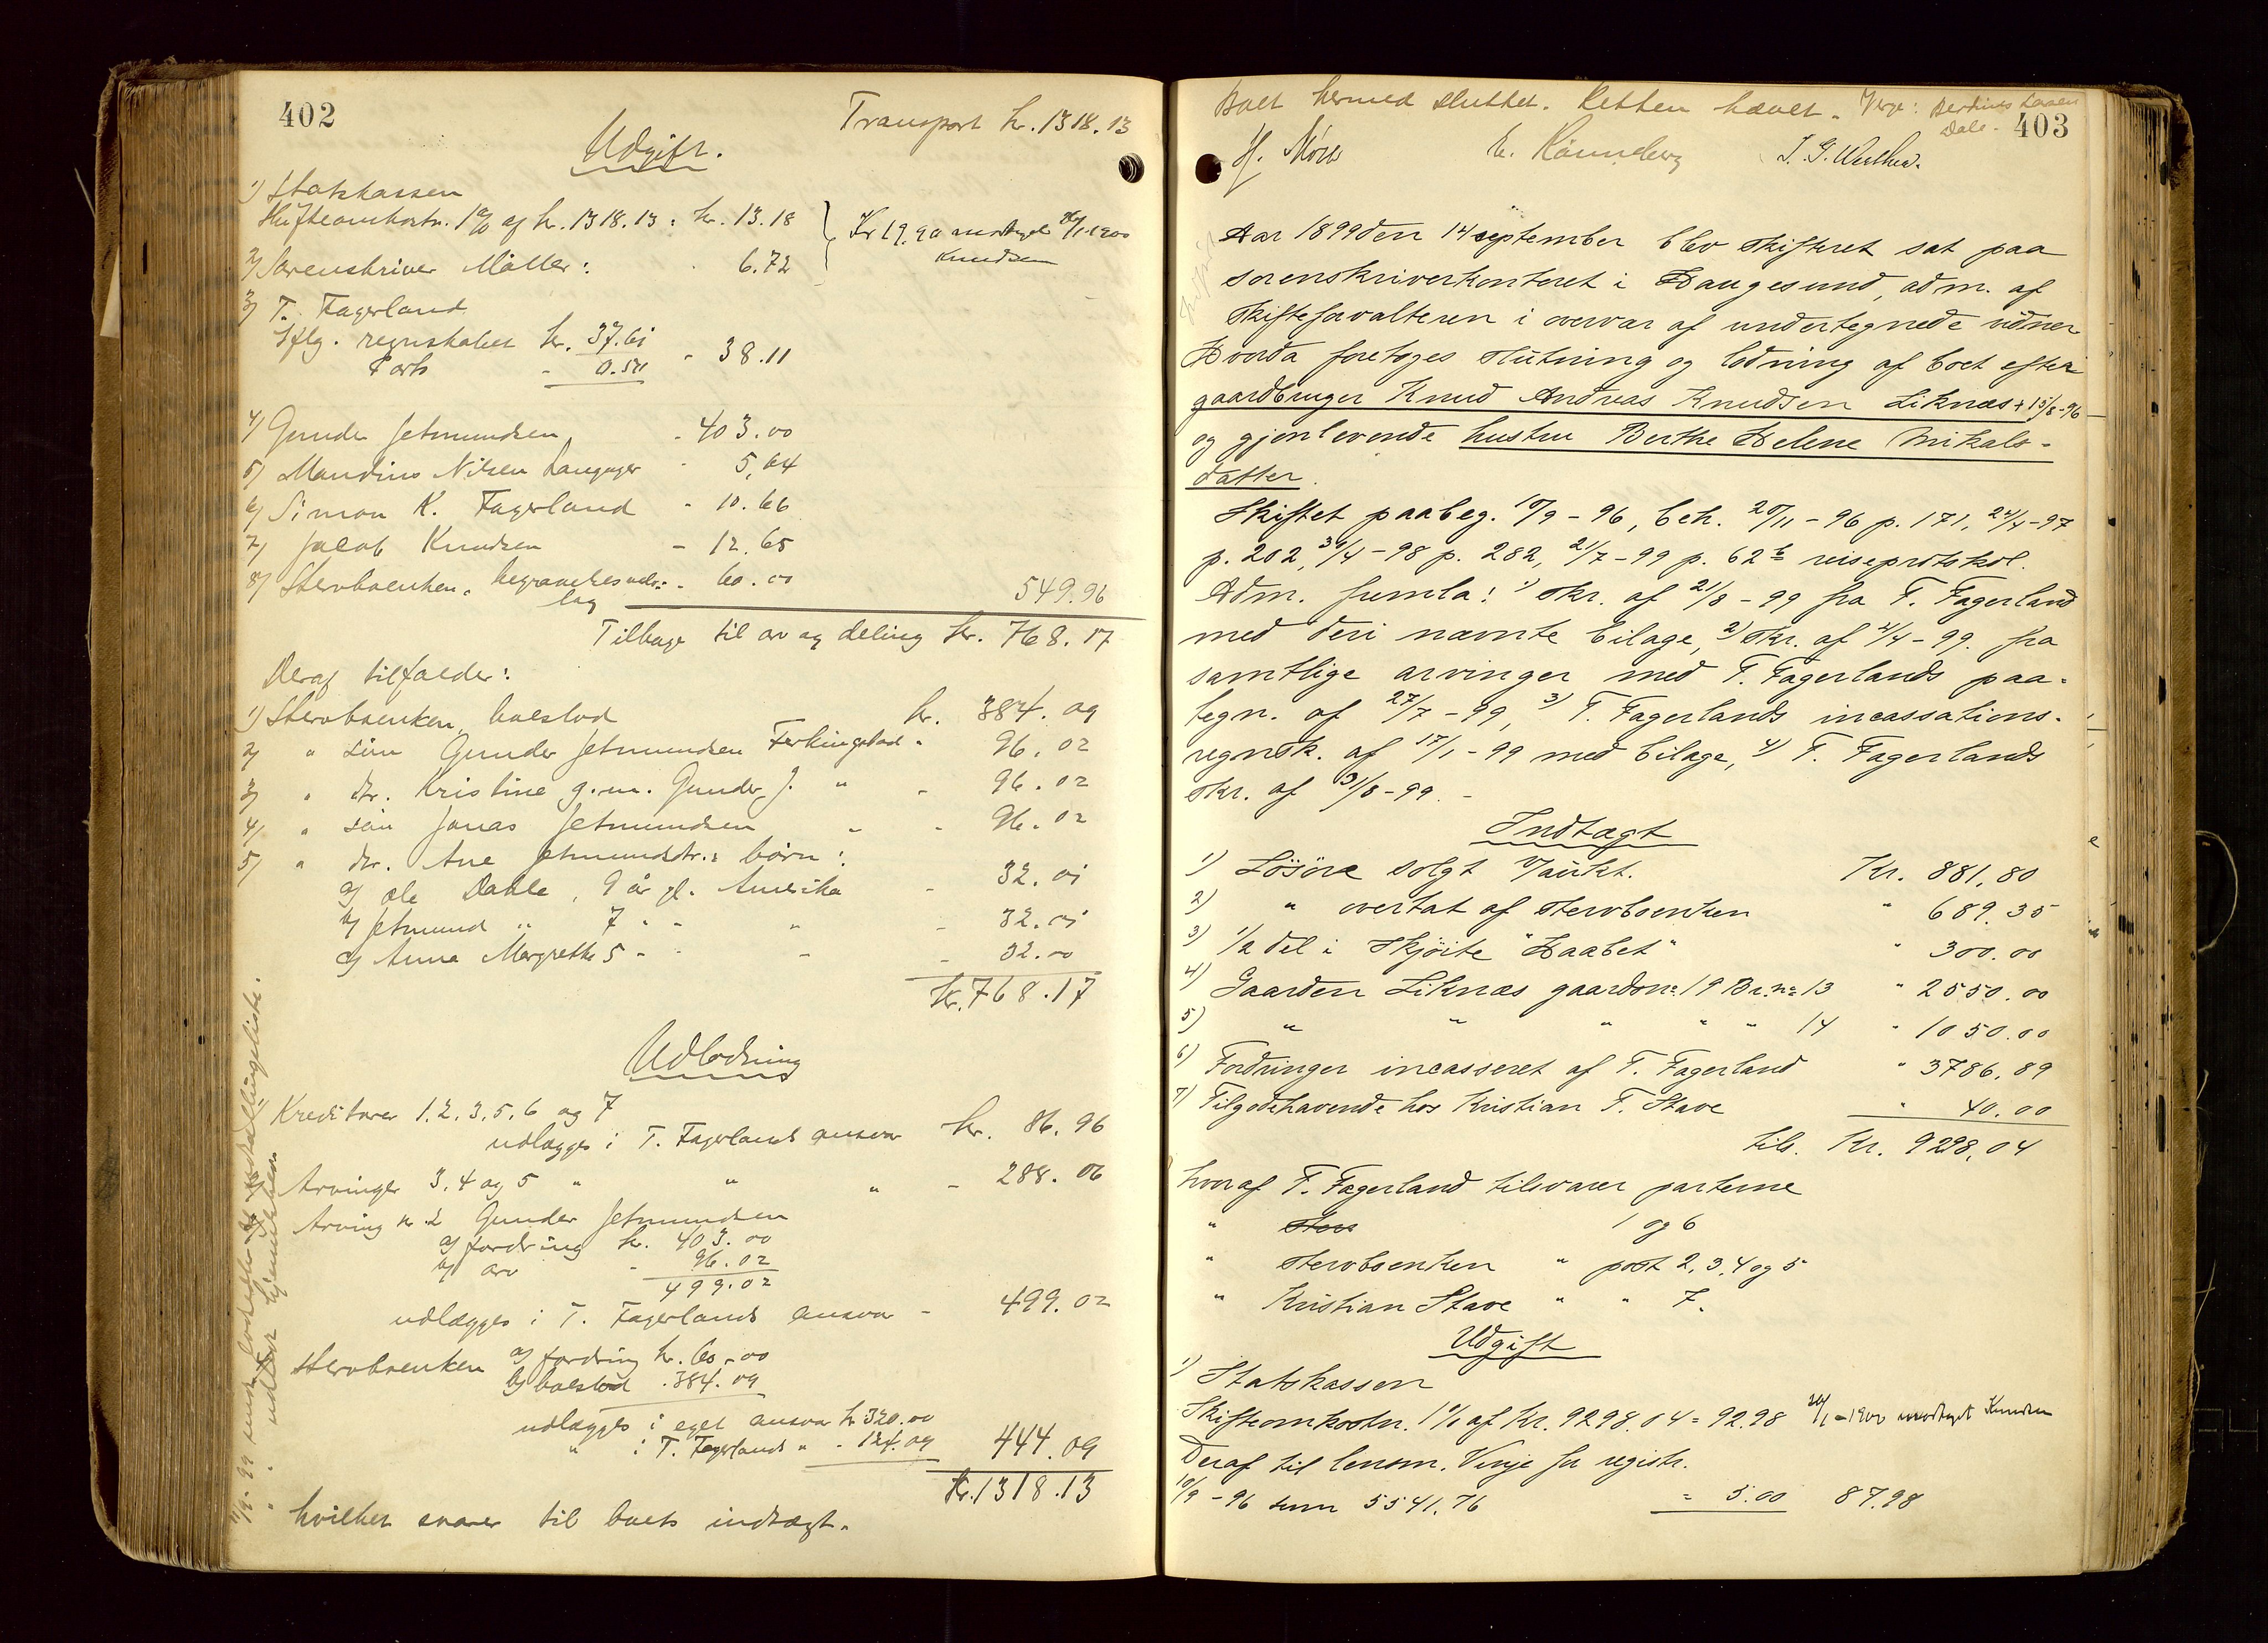 402
Transport kr. 1318.13
Udgift.
1) Statskassen
Skifteomkostn. 1% af kr. 1318.13 = kr. 13.18
Kr 19.90 modtaget 26/1-1900
Knudsen
2) Sorenskriver Møller: - 6.72
3) T. Fagerland
Iflg. regnskabet kr. 37.61
Porto - 0.50 - 38.11
4) Gunder Jetmundsen - 403.00
5) Mandius Nilsen Langager - 5,64
6) Simon K. Fagerland - 10.66
7) Jacob Knudsen - 12.65
8) Stervboenken, begravelsesud- - 60.00 549.96
læg
Tilbage til arv og deling kr. 768.17
Deraf tilfalder:
1) Stervboenken, boeslod kr. 384.09
2) " søn Gunder Jetmundsen Ferkingstad - 96.02
3) " dr. Kristine g.m. Gunder J. " - 96.02
4) " søn Jonas Jetmundsen " - 96.02
5) " dr. Ane Jetmundsdtr.s børn:
a) Ole Dahle, 9 år gl. Amerika - 32.01
b) Jetmund " 7 " - " - 32.01
c) Anna Margrethe 5 " - " - 32.00
kr. 768.17
Udlodning
Kreditorer 1.2.3.5.6 og 7
udlægges i T. Fagerlands ansvar kr. 86.96
Arvinger 3.4 og 5 " " " - 288.06
Arving nr 2 Gunder Jetmundsen
a) fordring kr. 403.00
b) arv - 96.02
499.02
udlægges i T. Fagerlands ansvar - 499.02
Stervboenken a) fordring kr. 60.00
b) boeslod - 384.09
udlægges i eget ansvar kr 320.00
" i T. Fagerlands " - 124.09 444.09
Kr. 1318.13
hvilket svarer til boets indtægt.
Boet hermed sluttet. Retten hævet. Verge: Berdines Larsen
Dale.
403
H. Mørk E. Rønneberg J. G. Werther.
Aar 1899 den 14 september blev skifteret sat paa
sorenskriverkontoret i Haugesund, adm. af
skifteforvalteren i overvær af undertegnede vidner
Hvorda foretoges slutning og lodning af boet efter
gaardbruger Knud Andreas Knudsen Liknæs + 15/8-96
og gjenlevende hustru Berthe Helene Mikals-
datter.
Skiftet paabeg. 10/9-96, beh. 20/11-96 p. 171, 24/4-97
p. 202, 30/4-98 p. 282, 21/7-99 p. 62b reiseprotokol.
Adm. fremla: 1) skr. af 21/8-99 fra T. Fagerland
med deri nævnte bilage, 2) skr. af 4/4-99. fra
samtlige arvinger med T. Fagerlands paa-
tegn. af 27/7-99, 3) T. Fagerlands incassations-
regnsk. af 17/1-99 med bilage, 4) T. Fagerlands
skr. af 31/8-99. -
Indtægt
1) Løsøre solgt v/aukt. Kr. 881,80
2) " overtat af stervboenken " 689.35
3) 1/2 del i skjøite "Haabet" " 300.00
4) Gaarden Liknæs gaardsn= 19 Br.n= 13 " 2550.00
5) " " " " " 14 " 1050.00
6) Fordringer incasseret af T. Fagerland " 3786,89
7) Tilgodehavende hos Kristian T. Stave " 40.00
tils. Kr. 9298,04
hvoraf T. Fagerland tilsvarer posterne
" 1 og 6
" stervboenken " post 2,3,4 og 5
" Kristian Stave " " 7.
Udgift
1) Statskassen
Skifteomkostn. 1% af Kr. 9298.04 = 92.98 26/1-1900 modtaget Knudsen
Deraf til lensm. Vinje for registr.
10/9-96 sum 5541.76 = 5.00 87.98